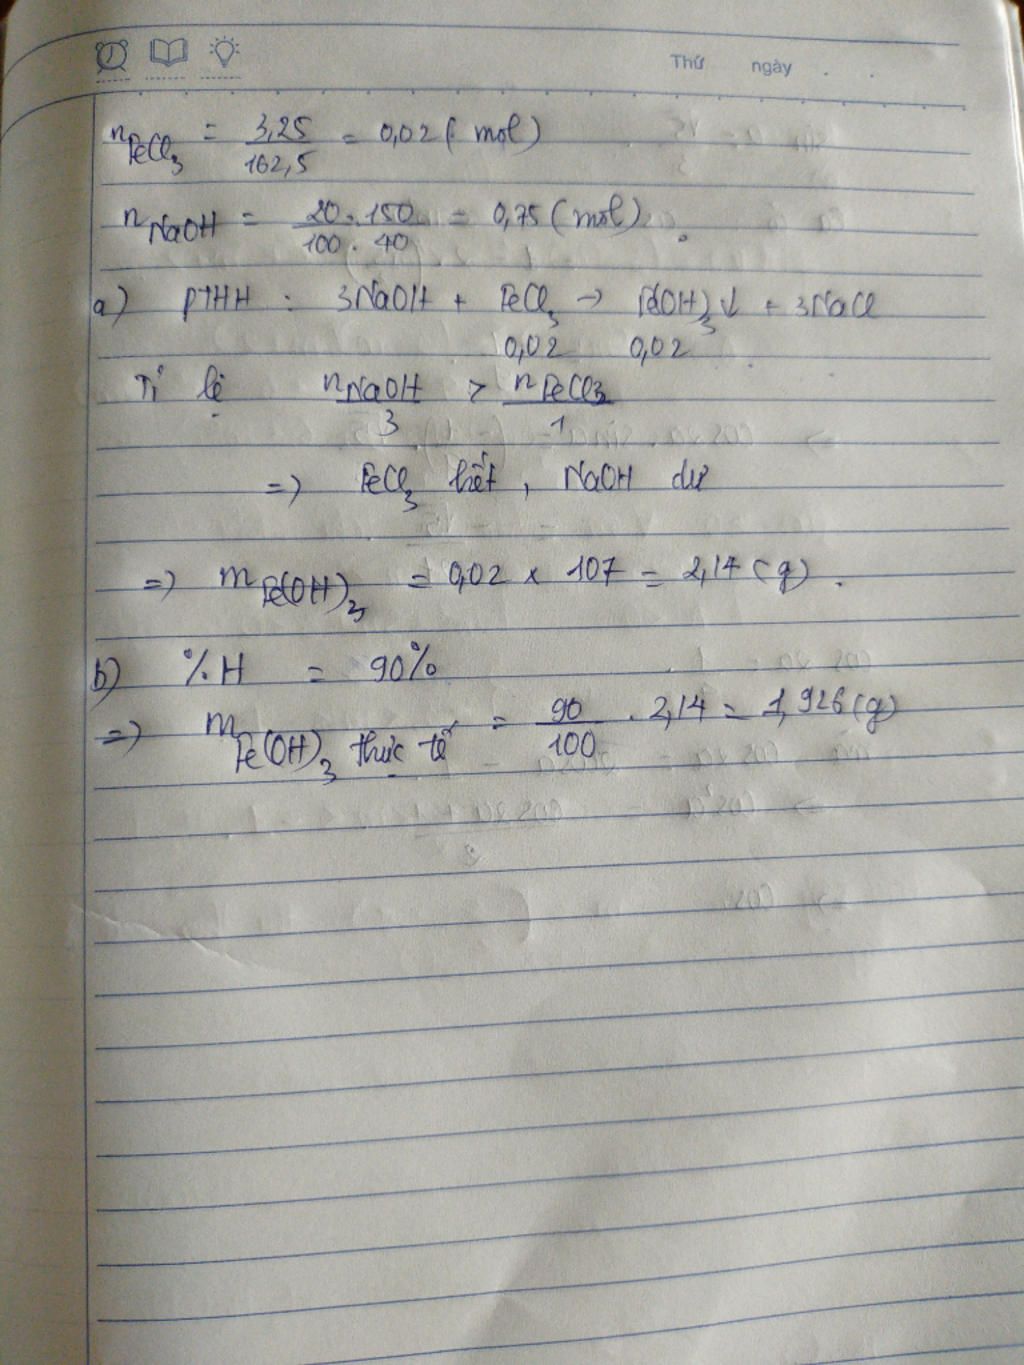 Thứ ngày . .
n FeCl3 = 3,25/162,5 = 0,02 ( mol)
n NaOH = 20.150/100.40 = 0,75 (mol).
a) PTHH : 3NaOH + FeCl3 → Fe(OH)3↓ + 3NaCl
0,02 0,02
Tỉ lệ nNaOH/3 > nFeCl3/1
=> FeCl3 hết, NaOH dư
=> m Fe(OH)3 = 0,02 x 107 = 2,14 (g).
b) %H = 90%
=> m Fe(OH)3 thực tế = 90/100 . 2,14 = 1,926 (g)